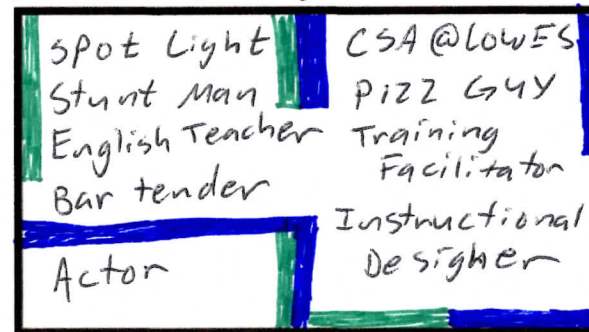 SPot Light
Stunt Man
English Teacher
Bar tender
Actor
CSA @ LOWES
PIZZ GUY
Training
Facilitator
Instructional
Designer